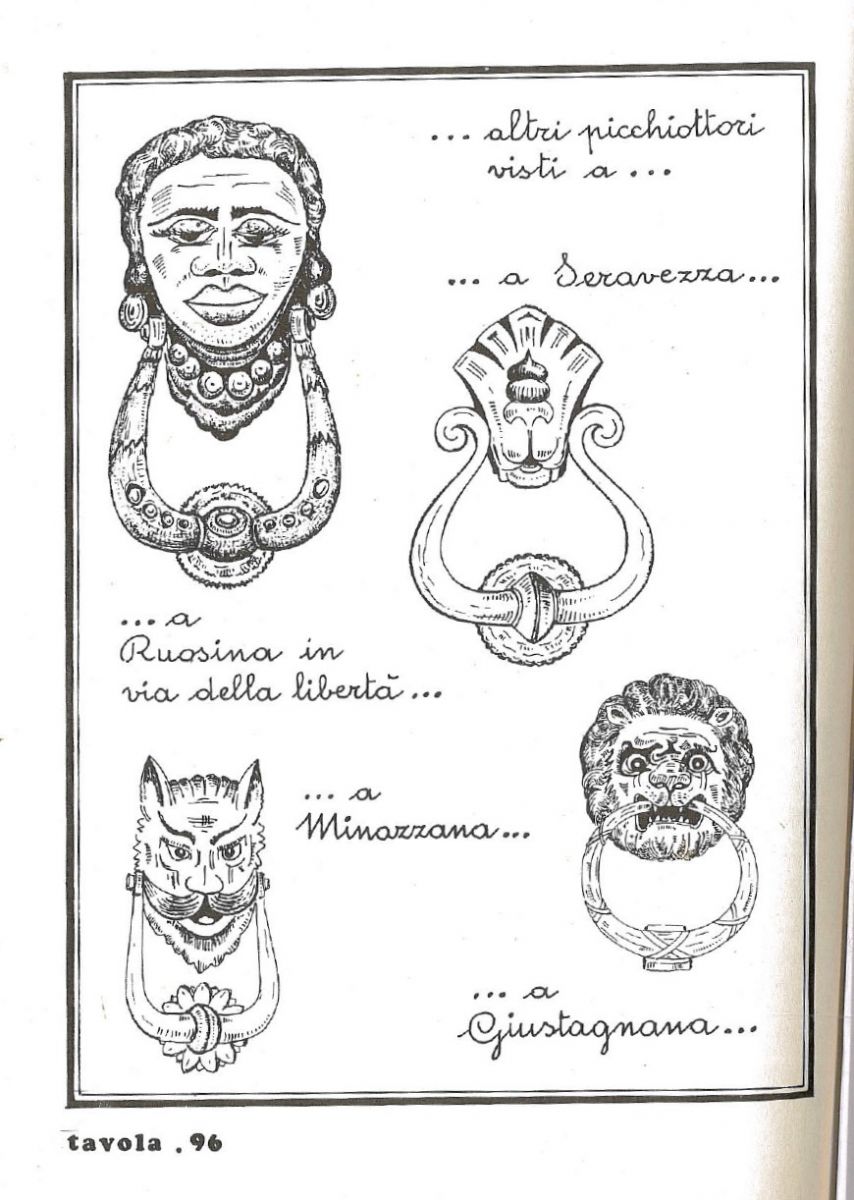 ... altri picchiottori
visti a ...
... a Seravezza...
... a
Ruosina in
via della libertà ...
... a
Minazzana...
... a
Giustagnana...
tavola . 96